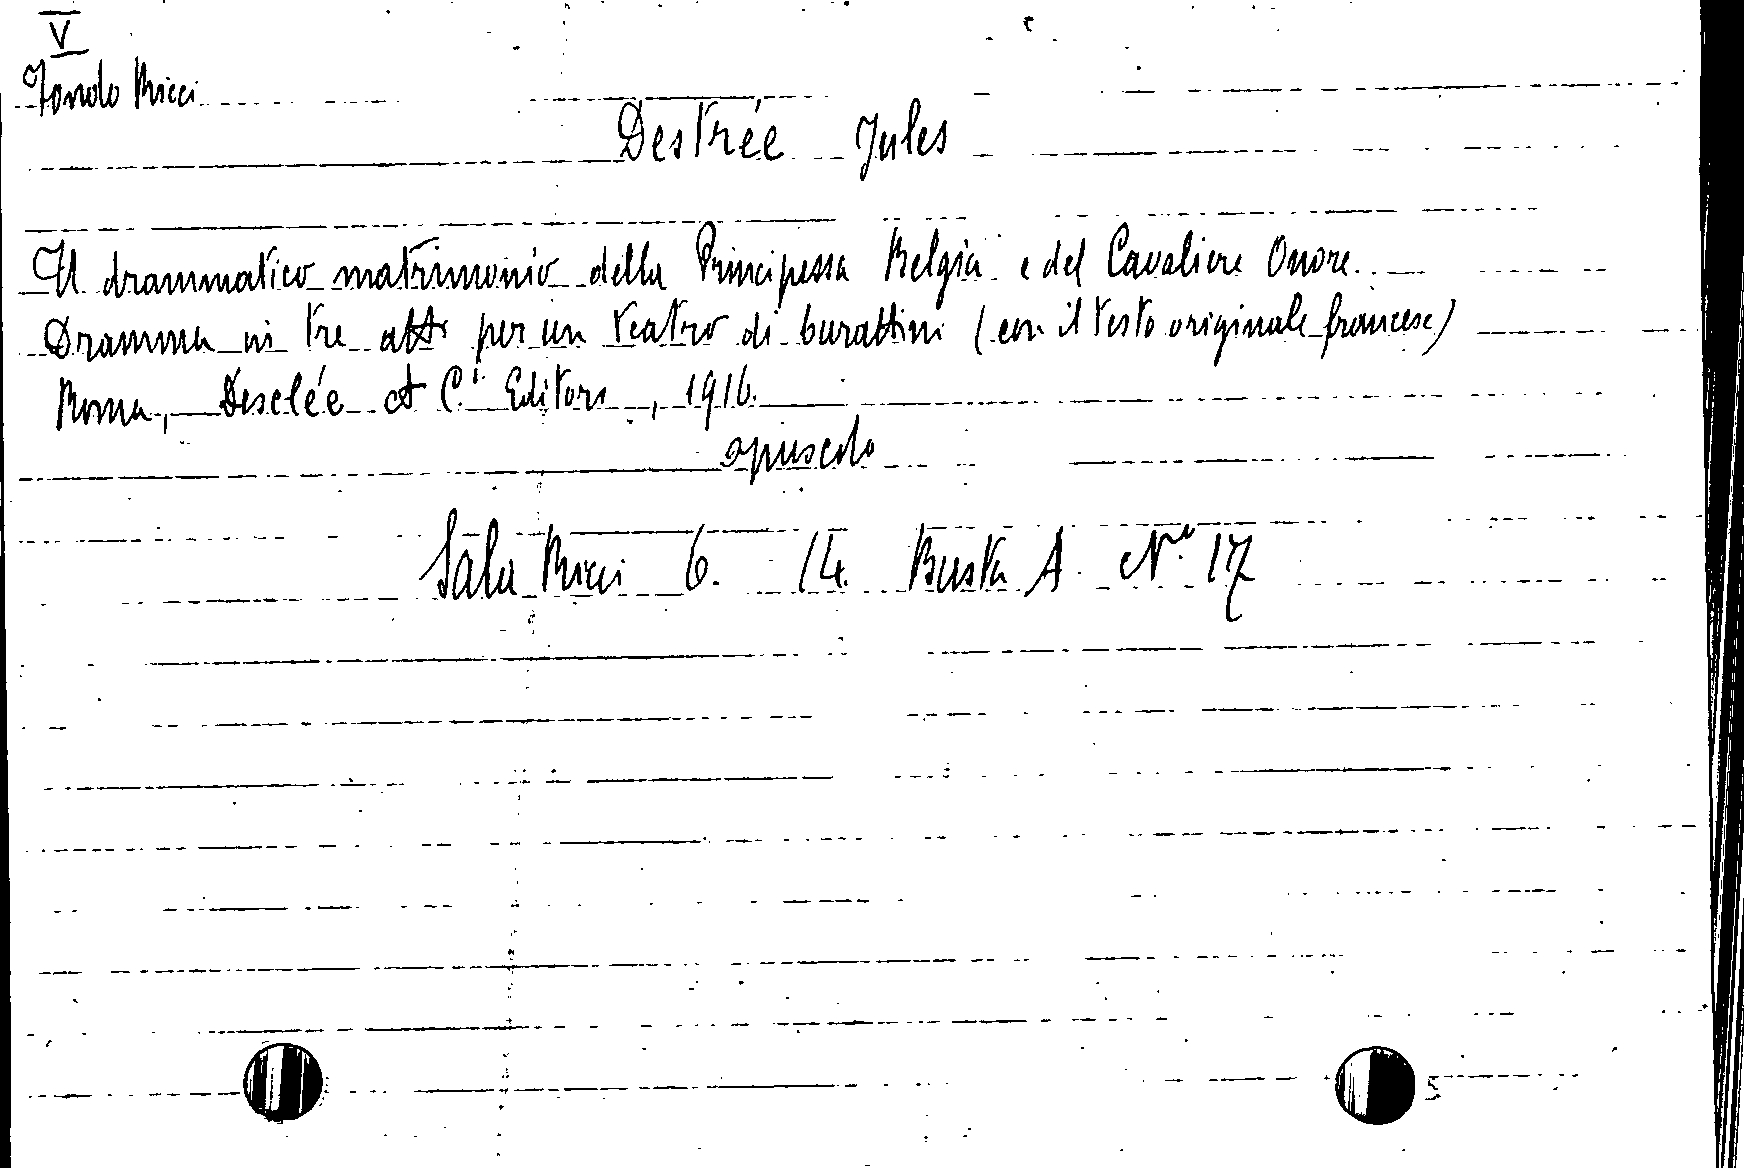 V
Fondo Ricci
Destrée Jules
Il drammatico matrimonio della Principessa Belgia e del Cavaliere Onore.
Dramma in tre atti per un teatro di burattini (con il testo originale francese)
Roma, Desclée et C.i Editori, 1916.
opuscolo
Sala Ricci 6. 14. Busta A. N.o 17
5